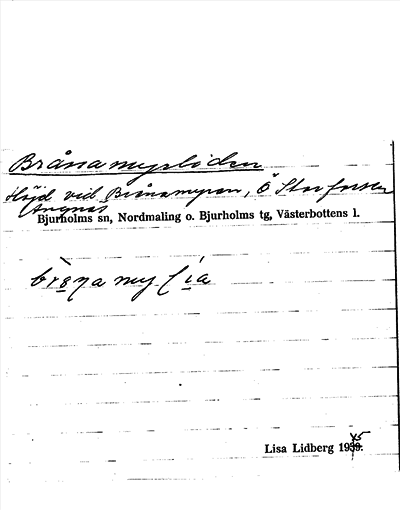 Brånamyrliden
Höjd vid Brånamyran, Ö Storforsen
Angnäs
Bjurholms sn, Nordmaling o. Bjurholms tg, Västerbottens l.
Lisa Lidberg 1939. 45